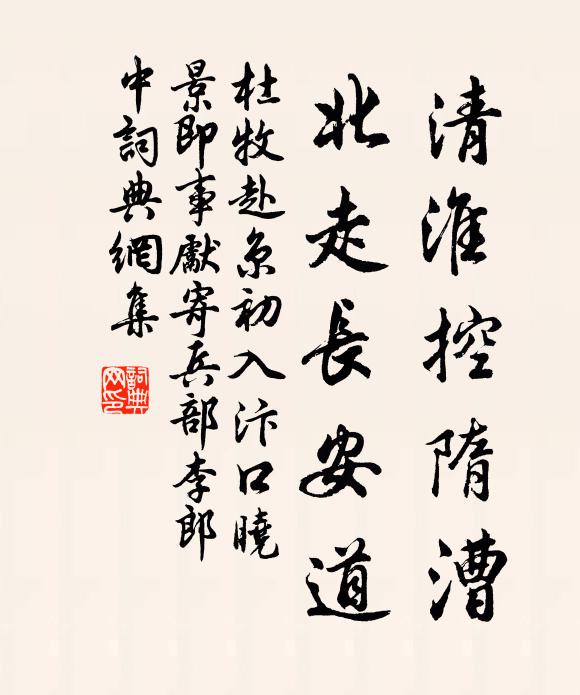 清淮控隋漕
北走長安道
杜牧赴京初入汴口曉
景即事獻寄兵部李郎
中詞典網集
詞典網印